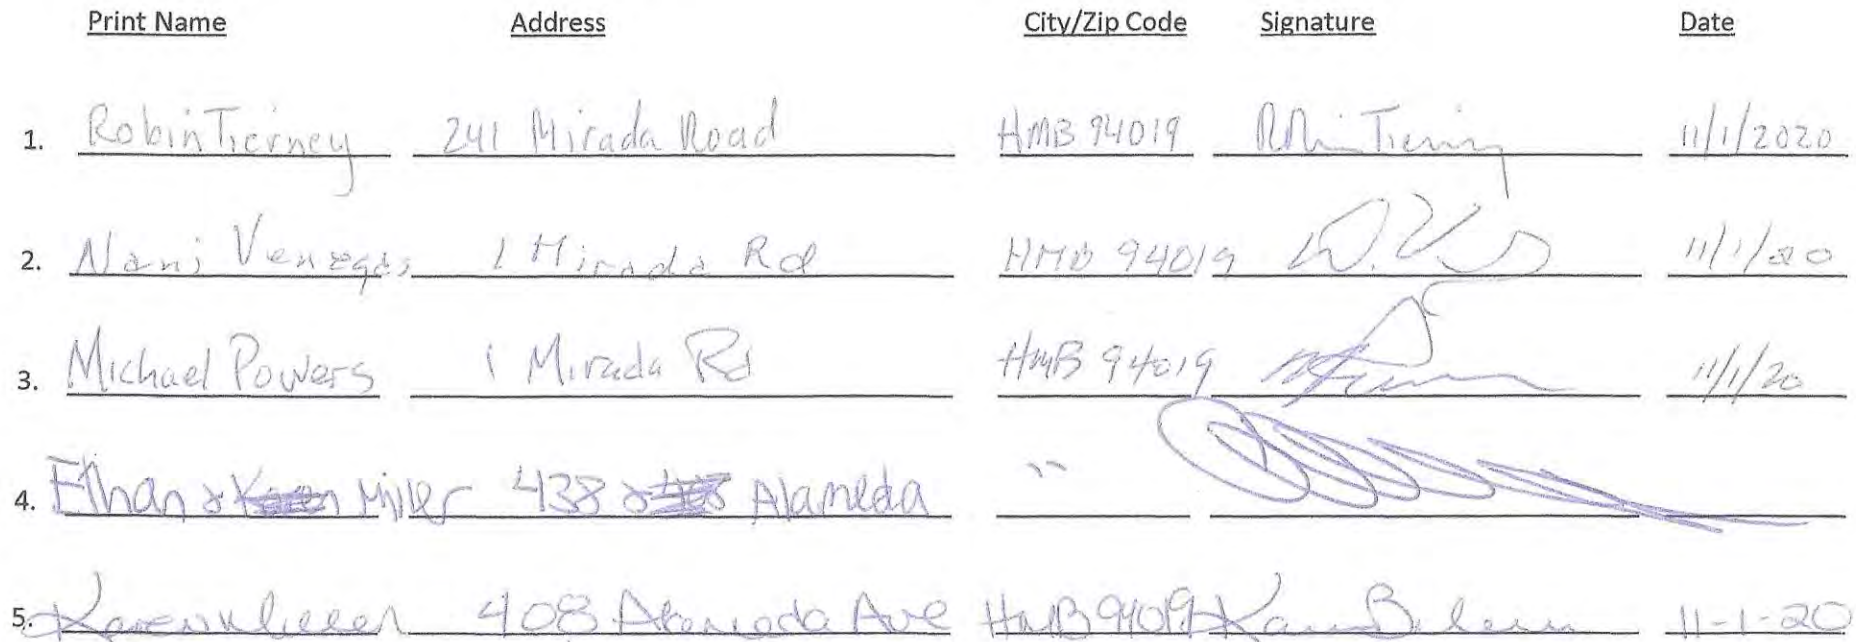 Print Name Address City/Zip Code Signature Date
1. Robin Tierney 241 Mirada Road HMB 94019 Robin Tierney 11/1/2020
2. Nani Venegas 1 Mirada Rd HMB 94019 11/1/20
3. Michael Powers 1 Mirada Rd HMB 94019 11/1/20
4. Ethan & Miller 438 Alameda "
5. Karen 408 Alameda Ave HMB 94019 Karen 11-1-20